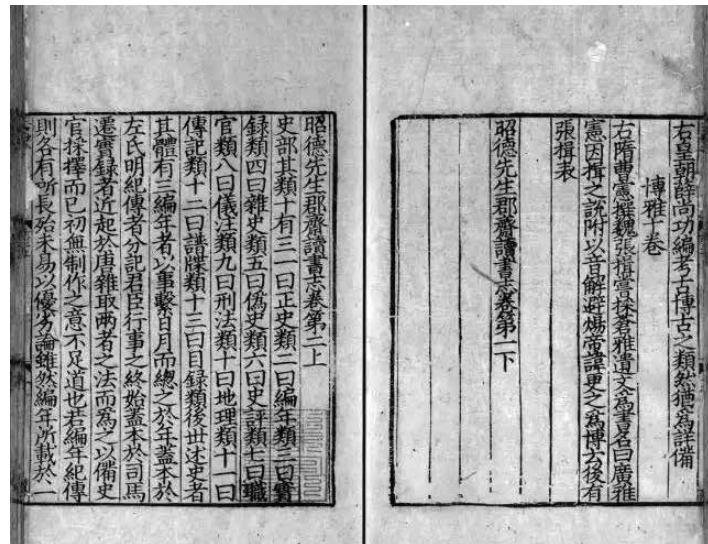 右皇朝薛尚功編考古博古之類然猶爲詳備
博雅十卷
右隋曹憲撰魏張揖嘗採蒼雅遺文爲書名曰廣雅
憲因揖之說附以音解避煬帝諱更之爲博云後有
張揖表
昭德先生郡齋讀書志卷第一下
昭德先生郡齋讀書志卷第二上
史部其類十有三一曰正史類二曰編年類三曰實
録類四曰雜史類五曰偽史類六曰史評類七曰職
官類八曰儀注類九曰刑法類十曰地理類十一曰
傳記類十二曰譜牒類十三曰目録類後丗述史者
其體有三編年者以事繫日月而總之於年蓋本於
左氏明紀傳者分記君臣行事之終始蓋本於司馬
遷實録者近起於唐雜取兩者之法而爲之以備史
官採擇而已初無制作之意不足道也若編年紀傳
則各有所長殆未易以優劣論雖然編年所載於一